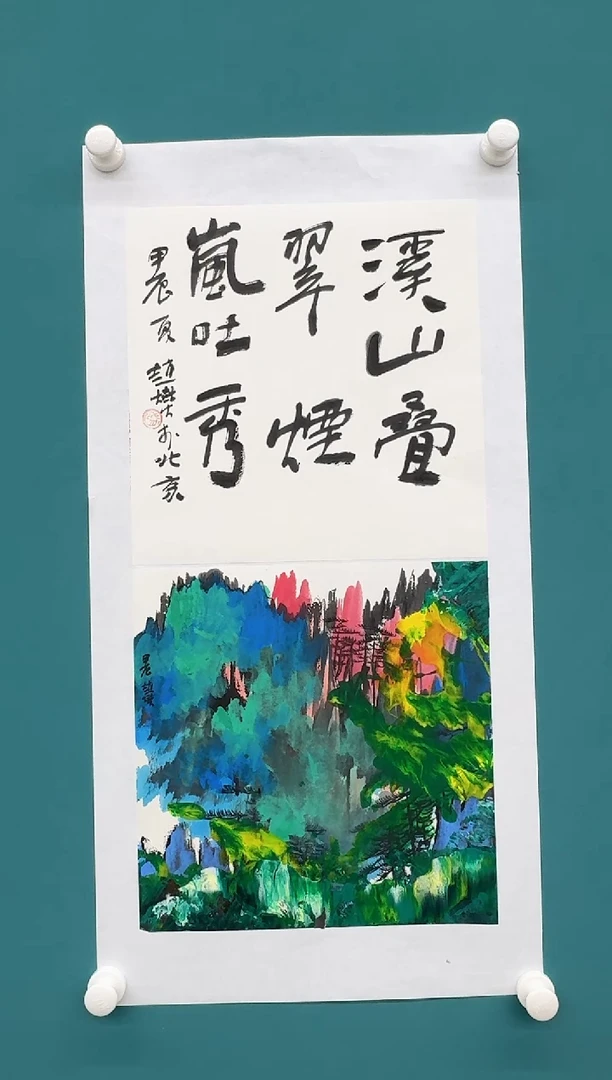 溪山叠
翠煙
嵐吐秀
甲辰夏趙燃於北京